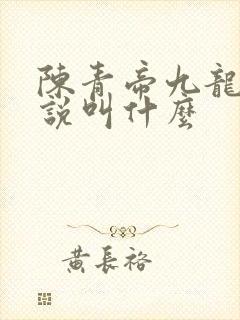 陳青帝九龍
說叫什麼
黃長裕